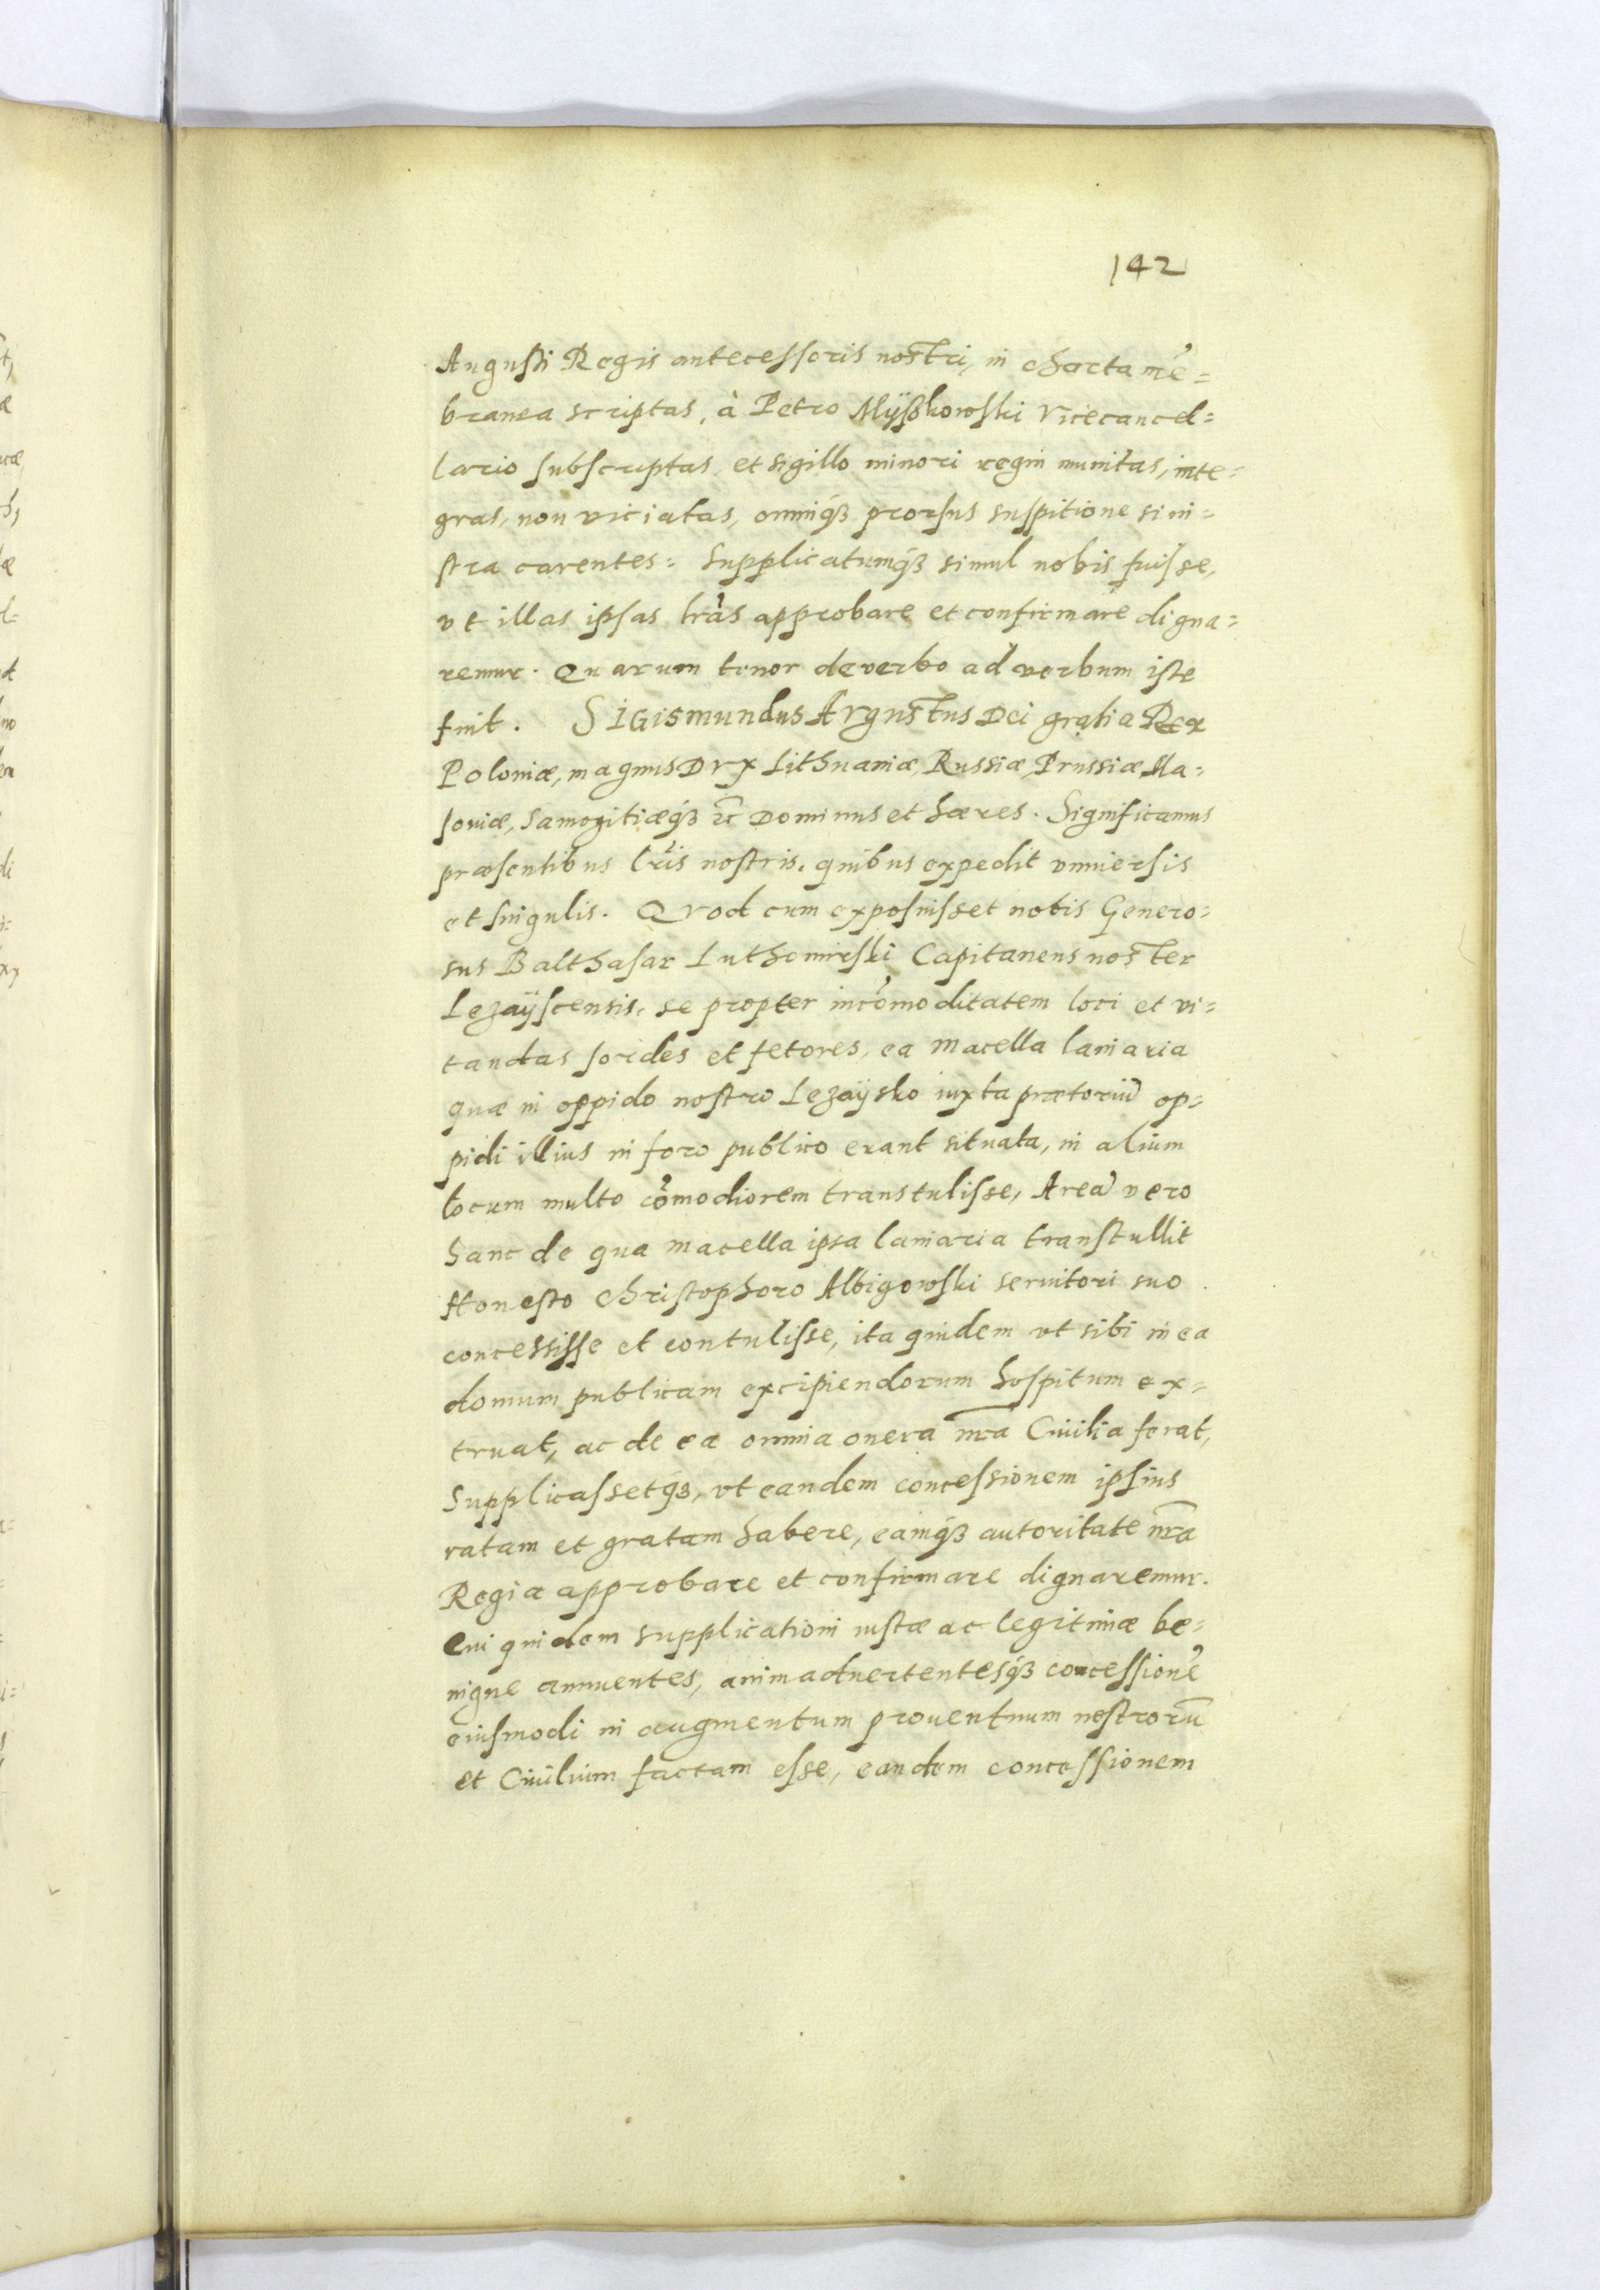 142
Augusti Regis antecessoris nostri, in charta mē=
branea scriptas, à Petro Mÿßkowski Vicecancel=
lario subscriptas, et sigillo minori regni munitas, inte=
gras, non viciatas, omniq́ꝫ prorsus suspitione sini=
stra carentes: Supplicatumq́ꝫ simul nobis fuisse,
vt illas ipsas lr̃as approbare et confirmare digna=
remur. Quarum tenor de verbo ad verbum iste
fuit. SIGISmundus AVgustus Dei gratia Rex
Poloniæ, magnus DVX Lithuaniæ, Russiæ, Prussiæ Ma=
soviæ, Samogitiæq́ꝫ ꝛc̃ Dominus et hæres. Significamus
præsentibus lr̃is nostris, quibus expedit vniuersis
et singulis. QVod cum exposuisset nobis Genero=
sus Balthasar Luthomirski Capitaneus noster
Lezaÿscensis, se propter incōmoditatem loci et vi=
tandas sordes et fetores, ea macella laniaria
quæ in oppido nostro Lezaÿsko iuxta prætoriū op=
pidi illius in foro publico erant situata, in alium
locum multo cōmodiorem transtulisse, Areā vero
hanc de qua macella ipsa laniaria transtullit
Honesto Christophoro Albigowski seruitori suo
concessisse et contulisse, ita quidem vt sibi in ea
domum publicam excipiendorum hospitum ex=
truat, ac de ea omnia onera nr̃a Ciuilia ferat,
Supplicassetq́ꝫ, vt eandem concessionem ipsius
ratam et gratam habere, eamq́ꝫ autoritate nr̃a
Regia approbare et confirmare dignaremur.
Cui quidem supplicationi iustæ ac legitimæ be=
nigne annuentes, animaduertentesq́ꝫ concessionē
eiusmodi in augmentum prouentuum nostrorū
et Ciuilium factam esse, eandem concessionem